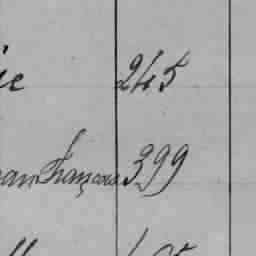 ie 245
ean François 399